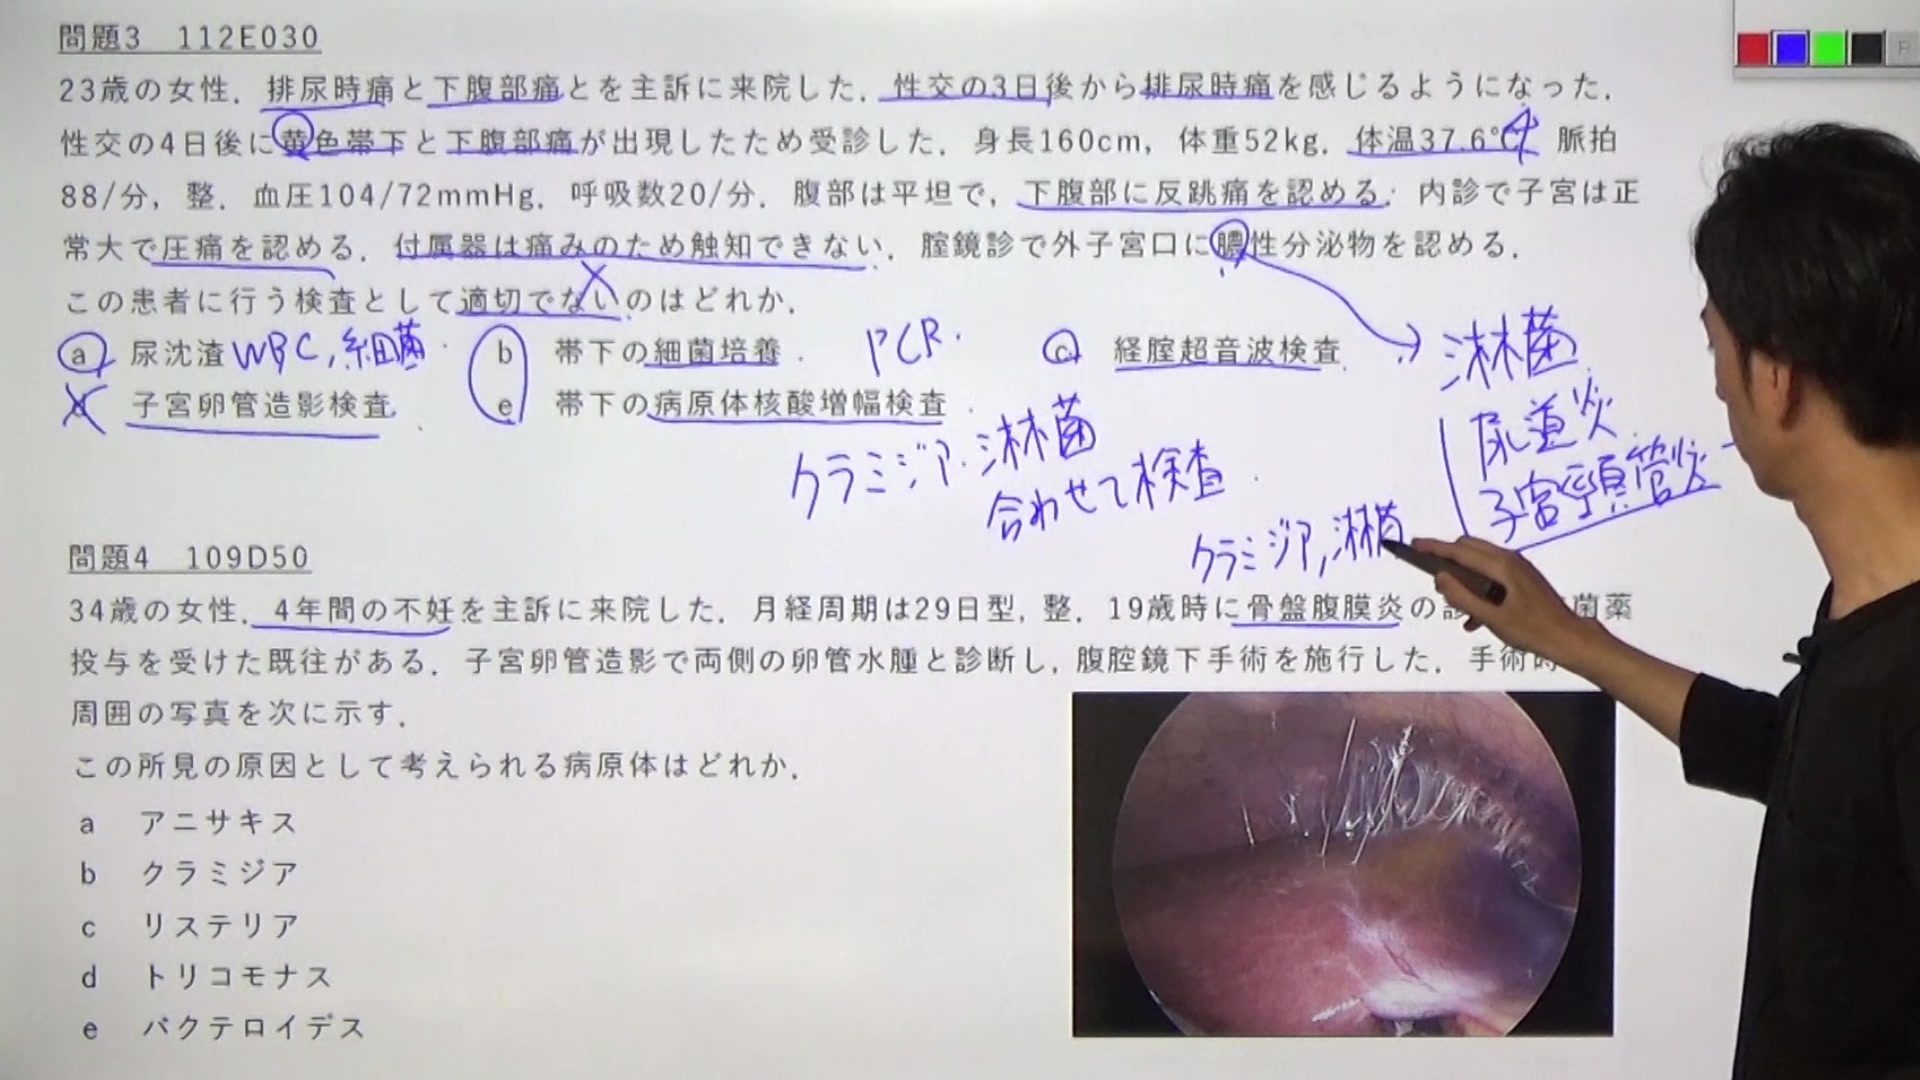 問題3 112E030
23歳の女性．排尿時痛と下腹部痛とを主訴に来院した．性交の3日後から排尿時痛を感じるようになった．
性交の4日後に黄色帯下と下腹部痛が出現したため受診した．身長160cm，体重52kg．体温37.6℃ 脈拍
88/分，整．血圧104/72mmHg．呼吸数20/分．腹部は平坦で，下腹部に反跳痛を認める．内診で子宮は正
常大で圧痛を認める．付属器は痛みのため触知できない．腟鏡診で外子宮口に膿性分泌物を認める．
この患者に行う検査として適切でないのはどれか．
a 尿沈渣 WBC，細菌 b 帯下の細菌培養． PCR． c 経腟超音波検査
淋菌
d 子宮卵管造影検査 e 帯下の病原体核酸増幅検査
尿道炎
クラミジア・淋菌
子宮頸管炎
合わせて検査
クラミジア，淋菌
問題4 109D50
34歳の女性．4年間の不妊を主訴に来院した．月経周期は29日型，整．19歳時に骨盤腹膜炎の 菌薬
投与を受けた既往がある．子宮卵管造影で両側の卵管水腫と診断し，腹腔鏡下手術を施行した．手術時
周囲の写真を次に示す．
この所見の原因として考えられる病原体はどれか．
a アニサキス
b クラミジア
c リステリア
d トリコモナス
e バクテロイデス